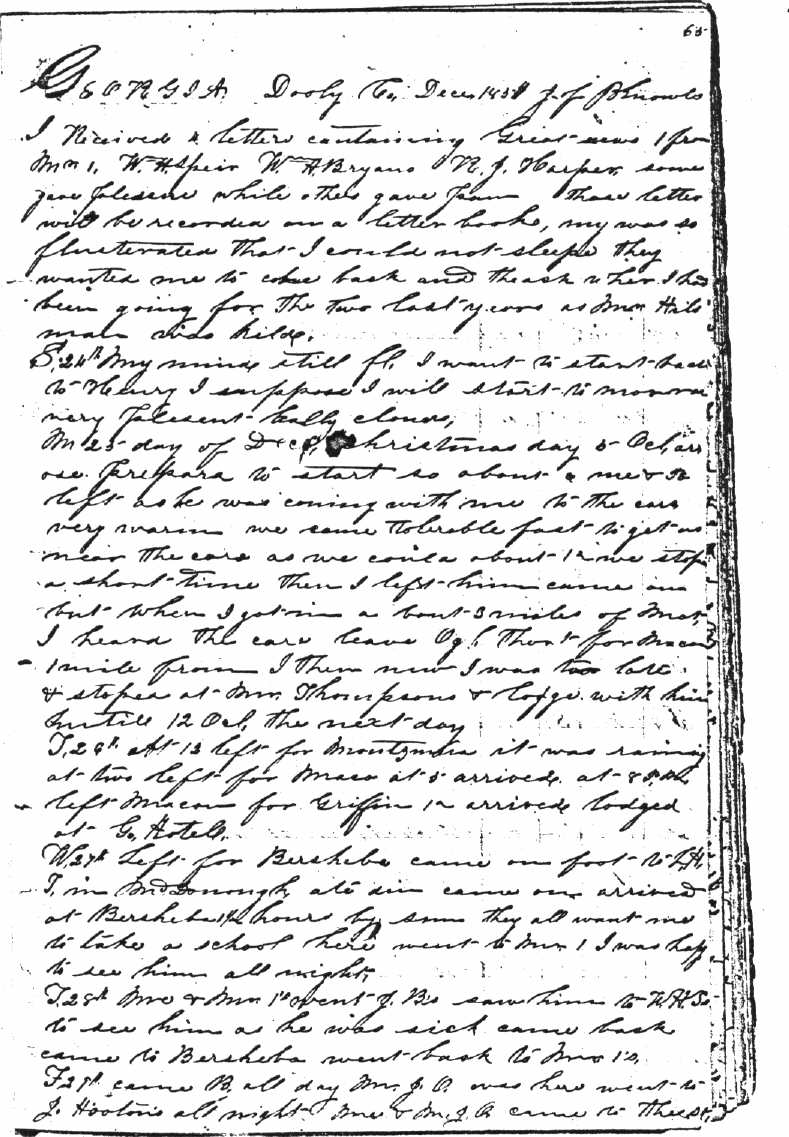 65
GEORGIA. Dooly Co, Dec, 185 J. J. B Knowls
I Received 4 letters cantaining Great news 1 from
Mr 1, W. H. Speir Wm A. Bryans R. J. Harper some
gave while others gave those letter
will be recorded on a letter booke, my was so
flusterated that I could not sleepe they
wanted me to come back and the ask wher I had
been going for The two last years as Mr
man was kild.
S, 24th My mind still fl. I want to start back
to Henry I suppose I will start to morrow
very plesent tolly cloudy,
M 25 day of Dec, Christmas day 5 Ocl, arr
ose prepara to start so about me &
left as he was coming with me to the cars
very warm we came tolerable fast to get as
near the cars as we could about 12 we stop
a short time then I left him came on
but when I got in a bout 3 miles of Mot,
I heard the cars leave Ogl, Thort for Macon
1 mile from I then new I was too late
& stoped at Mr. Thompsons & lodge with him
untill 12 Ocl, the next day
T, 26th At 12 left for Montzuma it was raining
at two left for Maco at 5 arrived. at 8
left Macon for Griffin 12 arrived lodged
at G. Hotell.
W, 27th Left for Bersheba came on foot to L. H.
T, in McDonough, ate din came on arrived
at Bersheba 1½ hours by sun they all want me
to take a school here went to Mr 1 I was hap
to see him all night,
T, 28th Me & Mr 1s went J. B's saw him to W. H. Ss
to see him as he was sick came back
came to Bersheba went back to Mr 1s,
F, 29th came B. all day Mr. J. O. was here went to
J. Hooton's all night Me & M, J. O. came to